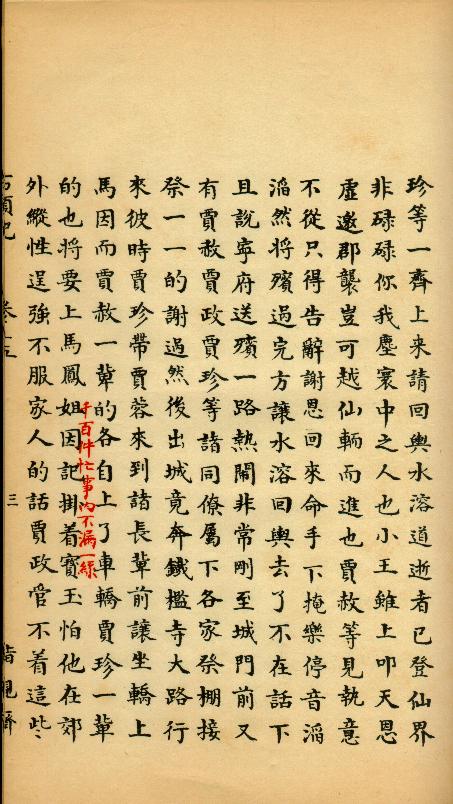 珍等一齊上來請回輿水溶道逝者已登仙界
非碌碌你我塵寰中之人也小王雖上叩天恩
虛邀郡襲豈可越仙輛而進也賈赦等見執意
不從只得告辭謝恩回來命手下掩樂停音滔
滔然將殯過完方讓水溶回輿去了不在話下
且說寧府送殯一路熱鬧非常剛至城門前又
有賈赦賈政賈珍等諸同僚屬下各家祭棚接
祭一一的謝過然後出城竟奔鐵檻寺大路行
來彼時賈珍帶賈蓉來到諸長輩前讓坐轎上
馬因而賈赦一輩的各自上了車轎賈珍一輩
千百件忙事內不漏一絲
的也將要上馬鳳姐因記掛着寳玉怕他在郊
外縱性逞強不服家人的話賈政管不着這些
三